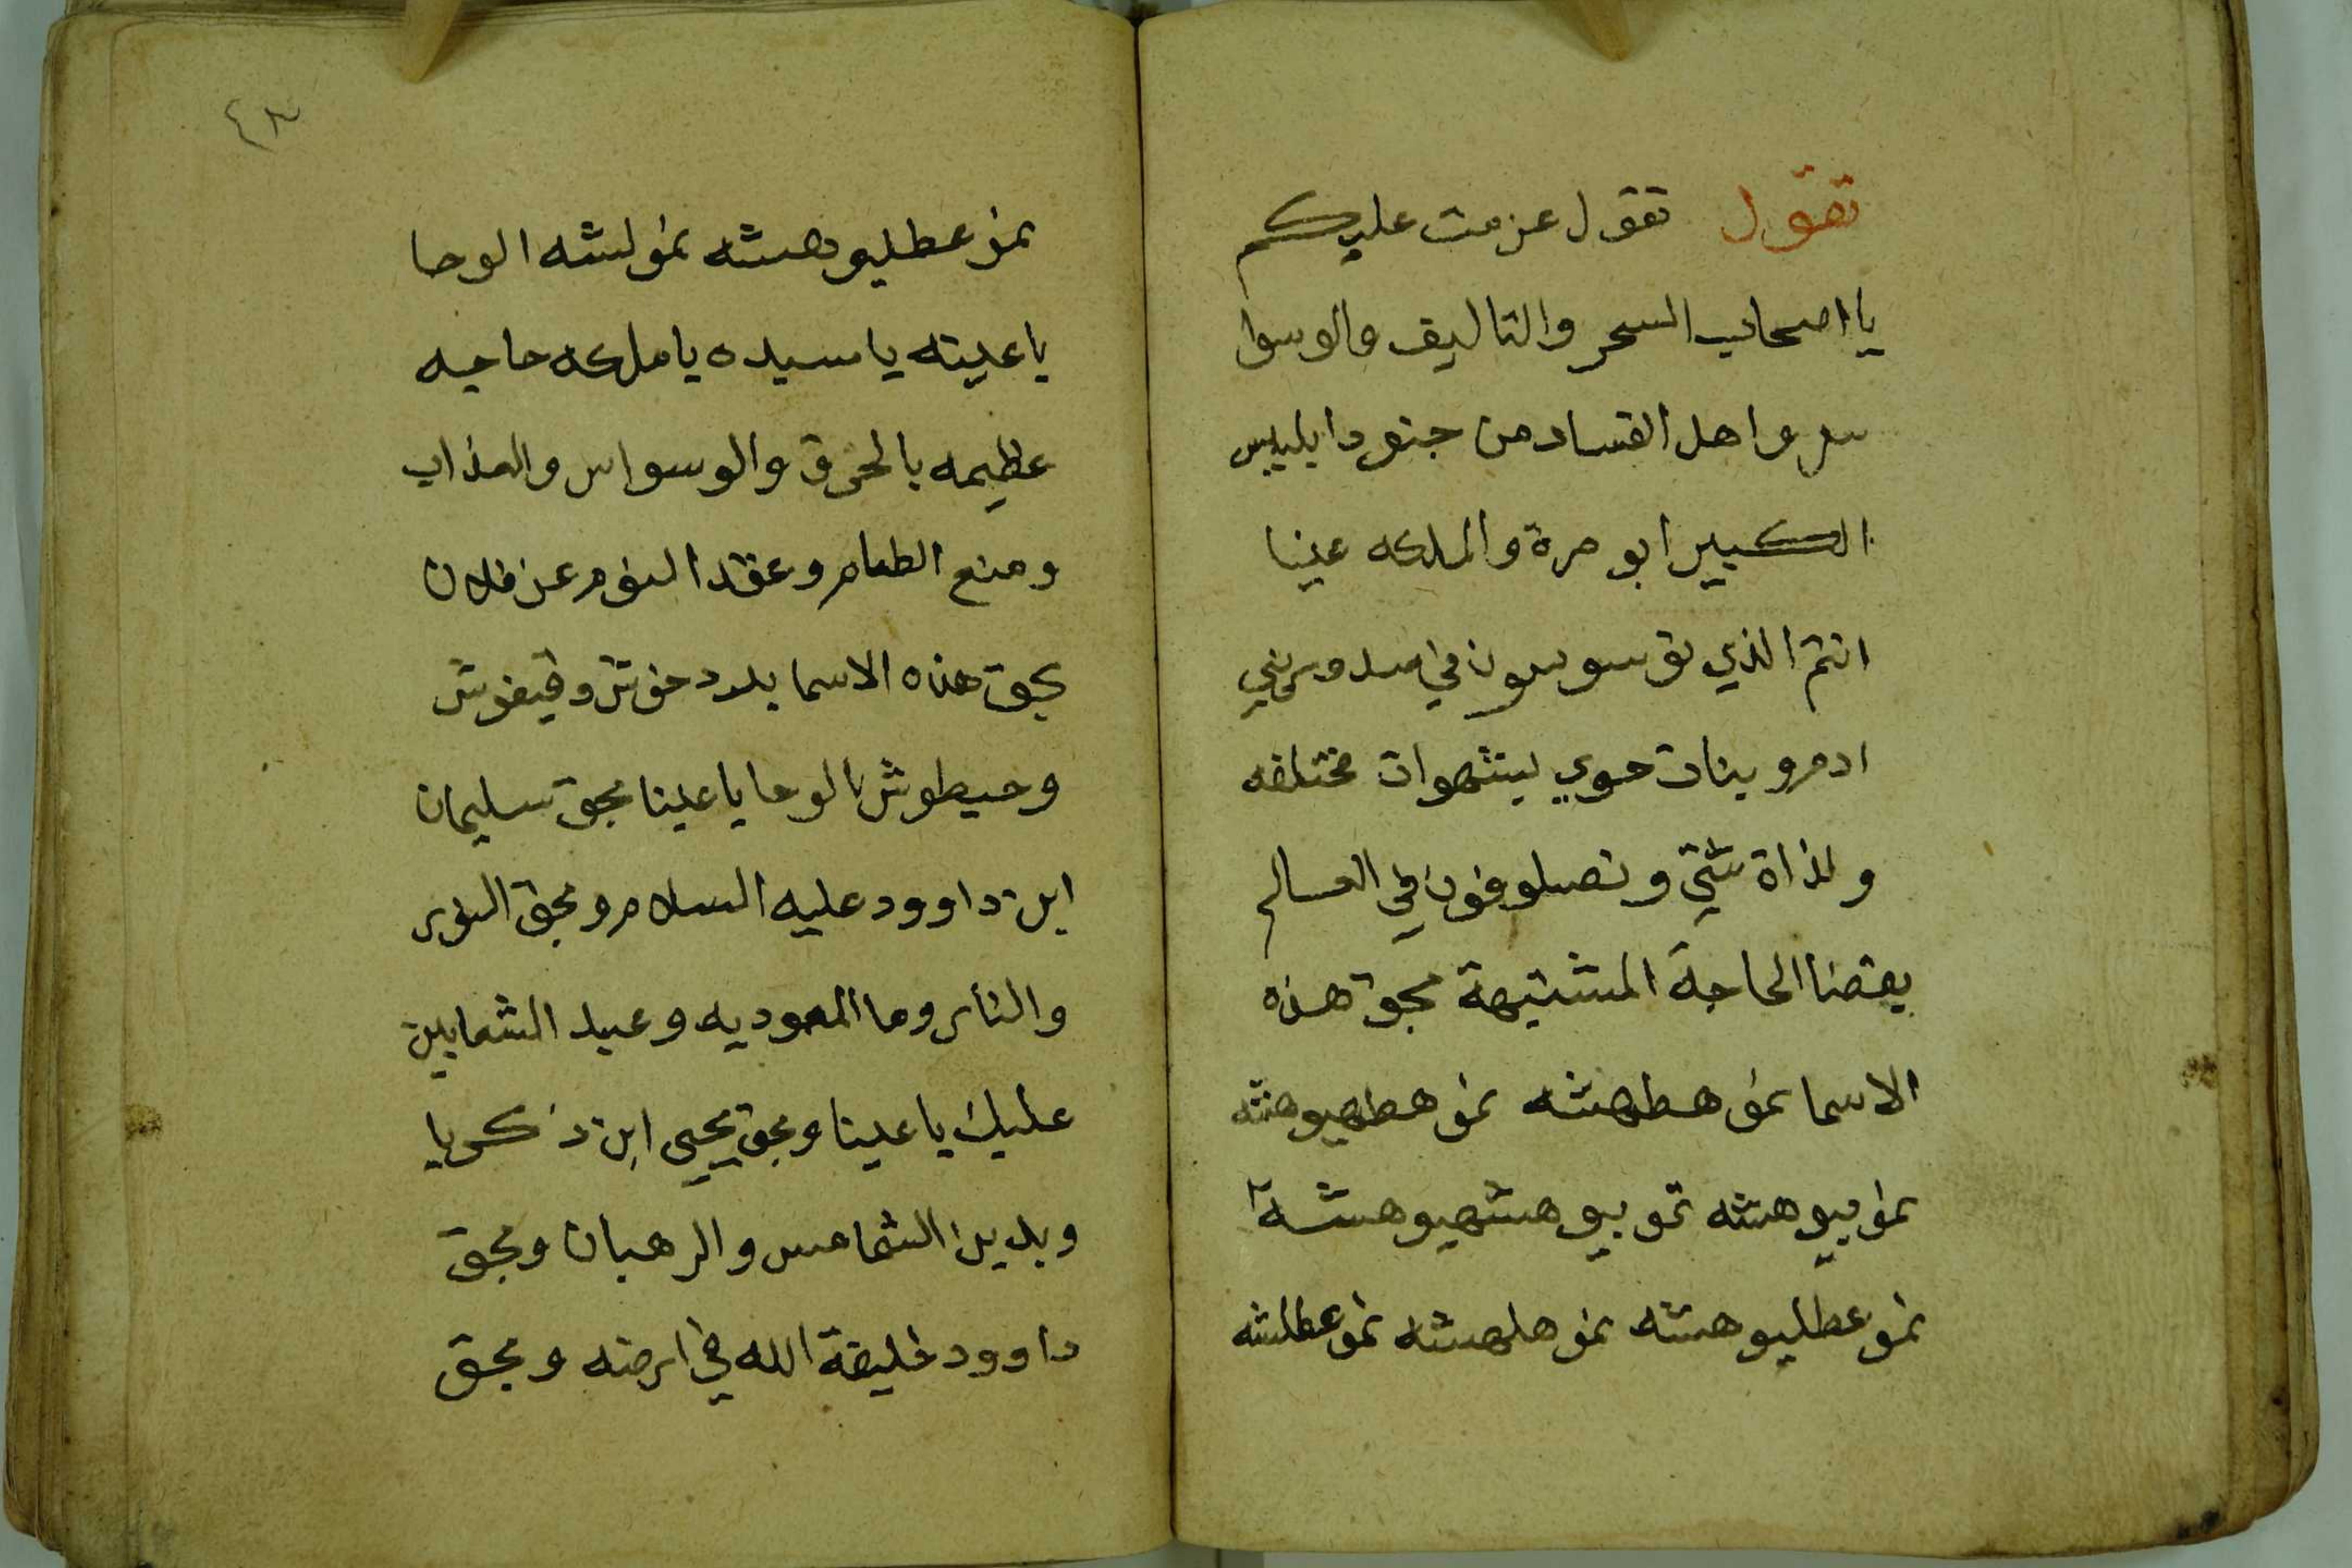 تقول تقول عزمت عليكم
يا اصحاب السحر والتاليف والوسوا
س واهل الفساد من جنود ابليس
الكبير ابو مرة والملكه عينا
انتم الذي توسوسون في صدور بني
ادم وبنات حوي بشهوات مختلفه
ولذاة شتي وتصلوفون في العالم
بقضا الحاجة المشتهية بحق هذه
الاسما نمو هطهشه نمو هطهيوهشه
نمو بيوهشه نمو بيو هشهيوهشه
نمو عطليوهشه نمو هلهشه نمو عطلشه
٤٣
نمو عطليوهشه نمولشه الوحا
يا عينه يا سيده يا ملكه حاجه
عظيمه بالحرق والوسواس والعذاب
ومنع الطعام وعقد النوم عن فلان
بحق هذه الاسما حوش وقيغوش
وحيطوش الوحا يا عينا بحق سليمان
ابن داوود عليه السلام وبحق النور
والنار وما المعوديه وعيد الشعابين
عليك يا عينا وبحق يحيى ابن ذكريا
وبدين الشمامس والرهبان وبحق
داوود خليفة الله في ارضه وبحق